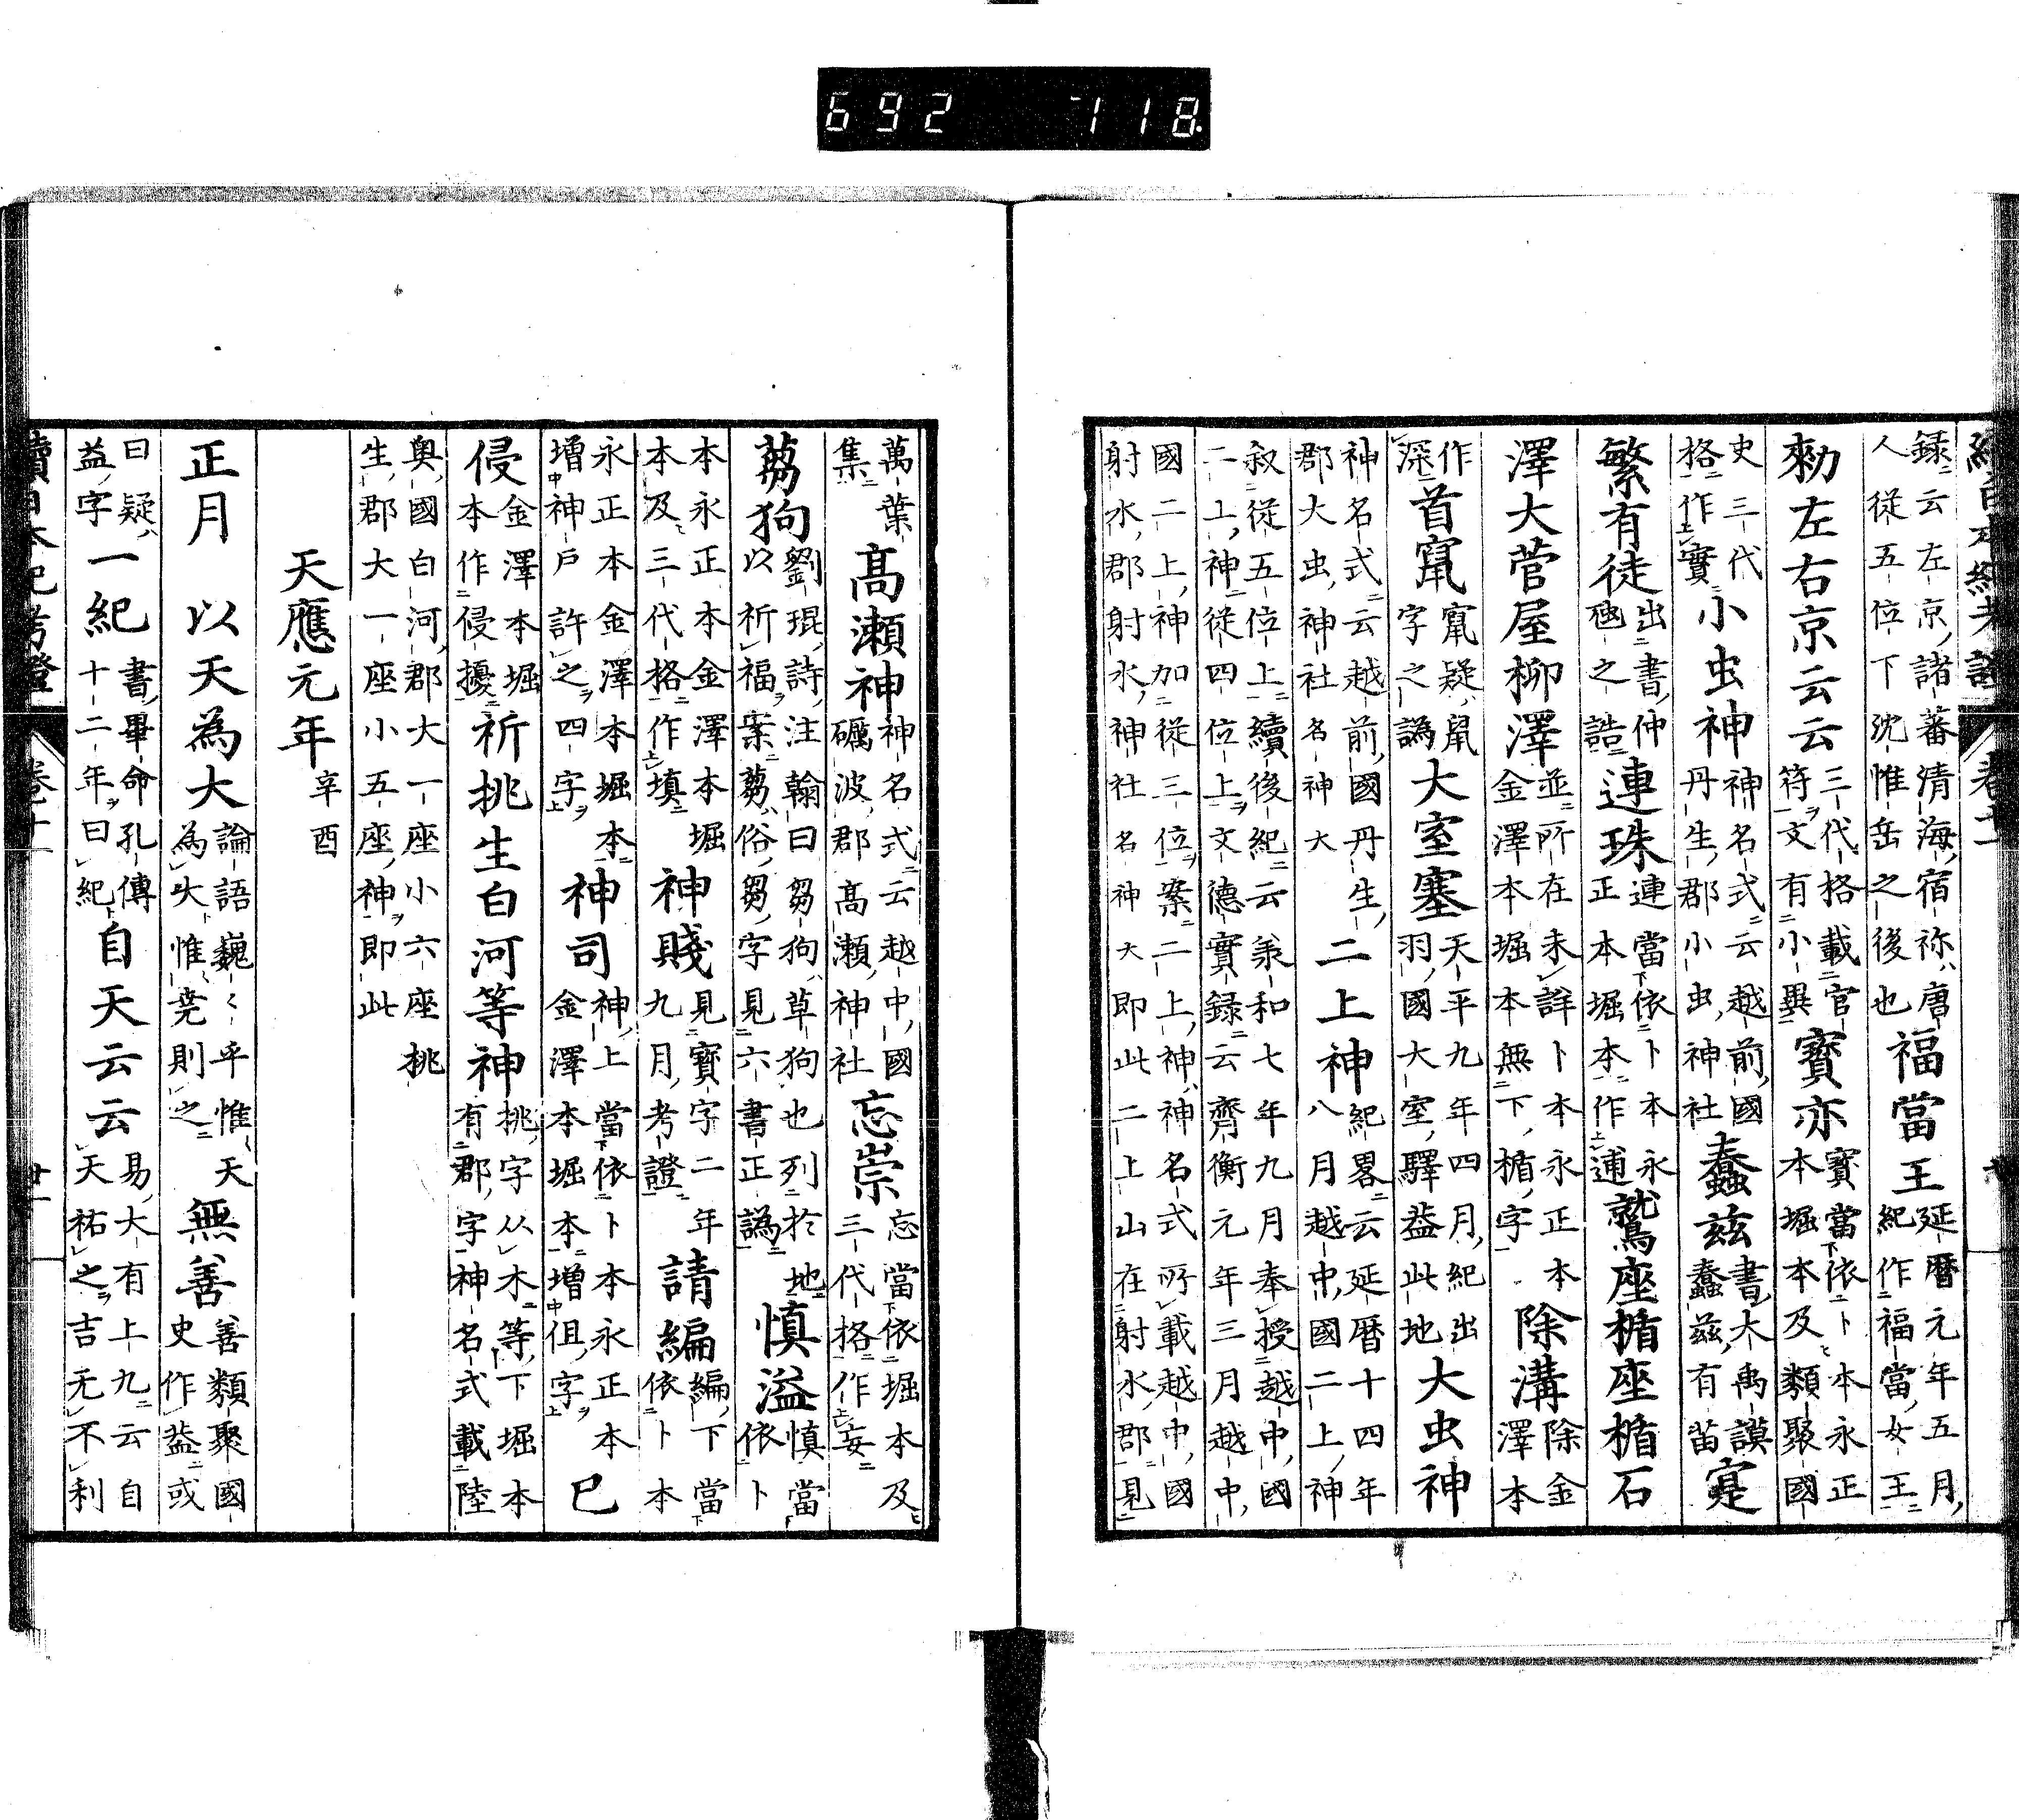 692 -118.
録云左京諸蕃清海宿祢唐人從五位下沈惟岳之後也福當王延暦元年五月紀作福當女王
勑左右京云云三代格載官符文有小異寳亦寳當依卜本永正本堀本及類聚國
史三代格作實小虫神神名式云越前國丹生郡小虫神社蠢茲書大禹謨蠢茲有苗寔
繁有徒出書仲虺之誥連珠連當依卜本永正本堀本作逋鷲座楯座楯石
澤大菅屋柳澤並所在未詳卜本永正本金澤本堀本無下楯字除溝除金澤本
作深首竄竄疑鼠字之譌大室塞天平九年四月紀出羽國大室驛葢此地大虫神
神名式云越前國丹生郡大虫神社名神大二上神紀畧云延暦十四年八月越中國二上神
叙從五位上續後紀云羕和七年九月奉授越中國二上神從四位上文德實録云齊衡元年三月越中
國二上神加從三位案二上神神名式所載越中國射水郡射水神社名神大即此二上山在射水郡見
萬葉集髙瀬神神名式云越中國礪波郡髙瀬神社忘崇忘當依堀本及三代格作妄
蒭狗劉琨詩注翰曰芻狗草狗也列於地以祈福案蒭俗芻字見六書正譌慎溢慎當依卜
本永正本金澤本堀本及三代格作填神賤見寳字二年九月考證請編編下當依卜本
永正本金澤本堀本増神戸許之四字神司神上當依卜本永正本金澤本堀本増但字已
侵金澤本堀本作侵擾祈挑生白河等神挑字从木等下堀本有郡字神名式載陸
奥國白河郡大一座小六座桃生郡大一座小五座神即此
天應元年辛酉
正月以天為大論語巍〻乎惟天為大惟尭則之無善善類聚國史作葢或
曰疑益字一紀書畢命孔傳十二年曰紀自天云云易大有上九云自天祐之吉无不利
續日本紀考證　巻十一　廿一